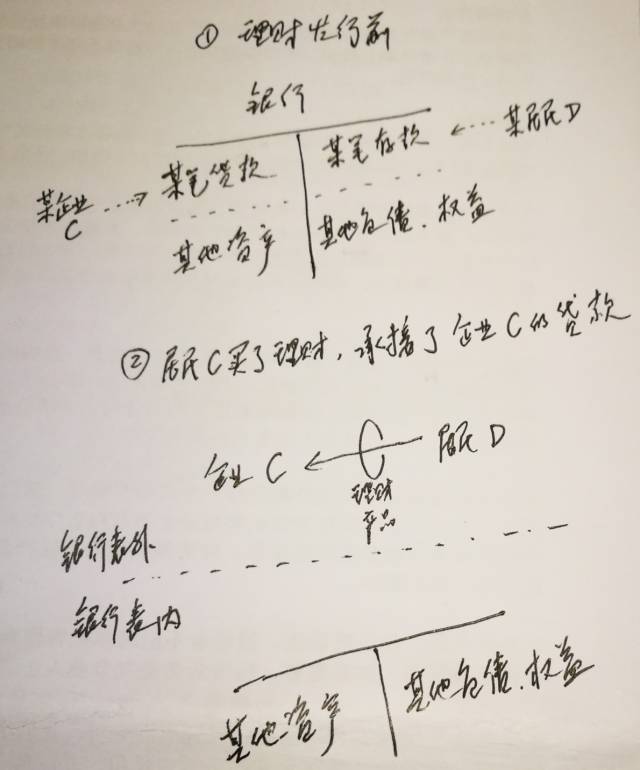 ① 理财发行前
银行
某笔贷款 某笔存款 ← 某居民D
某企业C → 
其他资产 其他负债、权益
② 居民C买了理财，承接了企业C的贷款
企业C ← 居民D
理财
产品
银行表外
银行表内
其他资产 其他负债、权益